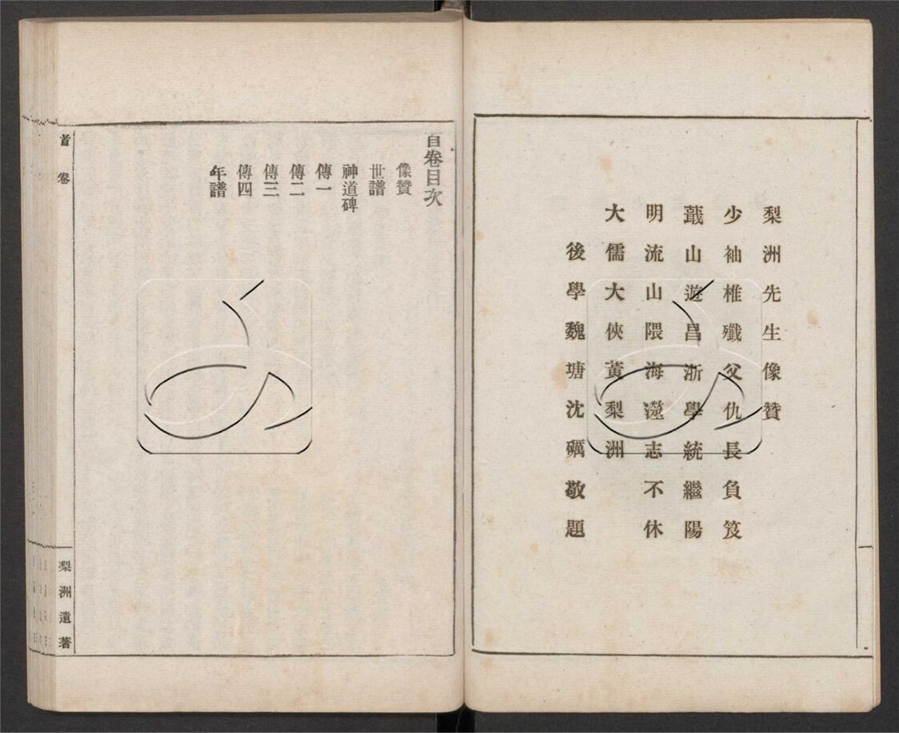 梨洲先生像贊
少袖椎殲父仇長負笈
蕺山遊昌浙學統繼陽
明流山隈海澨志不休
大儒大俠黃梨洲
後學魏塘沈礪敬題
首卷目次
像贊
世譜
神道碑
傳一
傳二
傳三
傳四
年譜
首卷
梨洲遺著